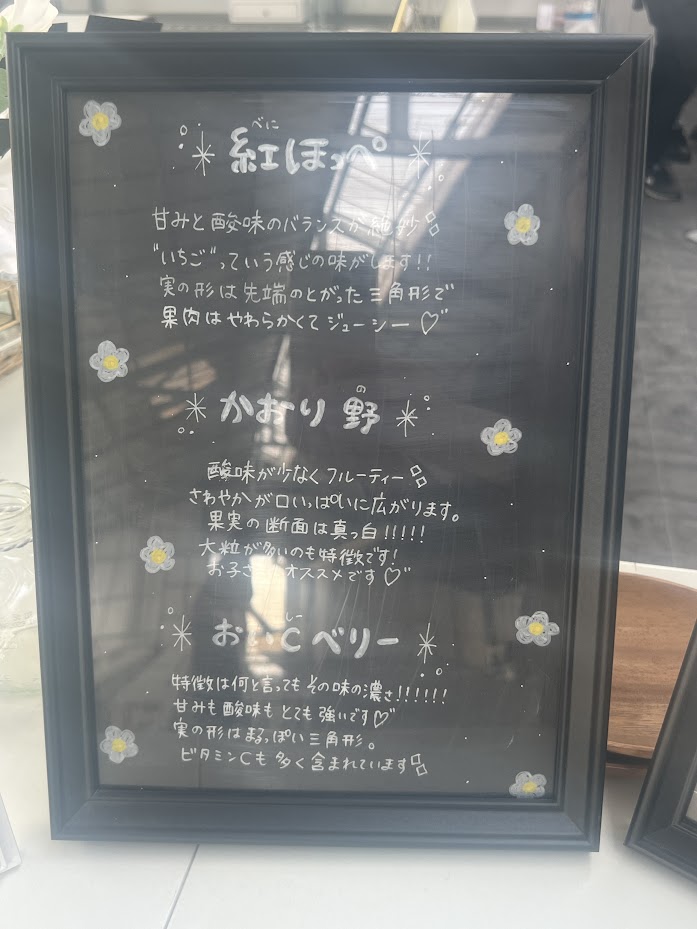 べに
紅ほっぺ
甘みと酸味のバランスが絶妙
"いちご"っていう感じの味がします!!
実の形は先端のとがった三角形で
果肉はやわらかくてジューシー♡
の
かおり野
酸味が少なくフルーティー
さわやかが口いっぱいに広がります。
果実の断面は真っ白!!!!!
大粒が多いのも特徴です!
お子さ オススメです♡
しー
おいCベリー
特徴は何と言ってもその味の濃さ!!!!!!
甘みも酸味もとても強いです♡
実の形はまるっぽい三角形。
ビタミンCも多く含まれています